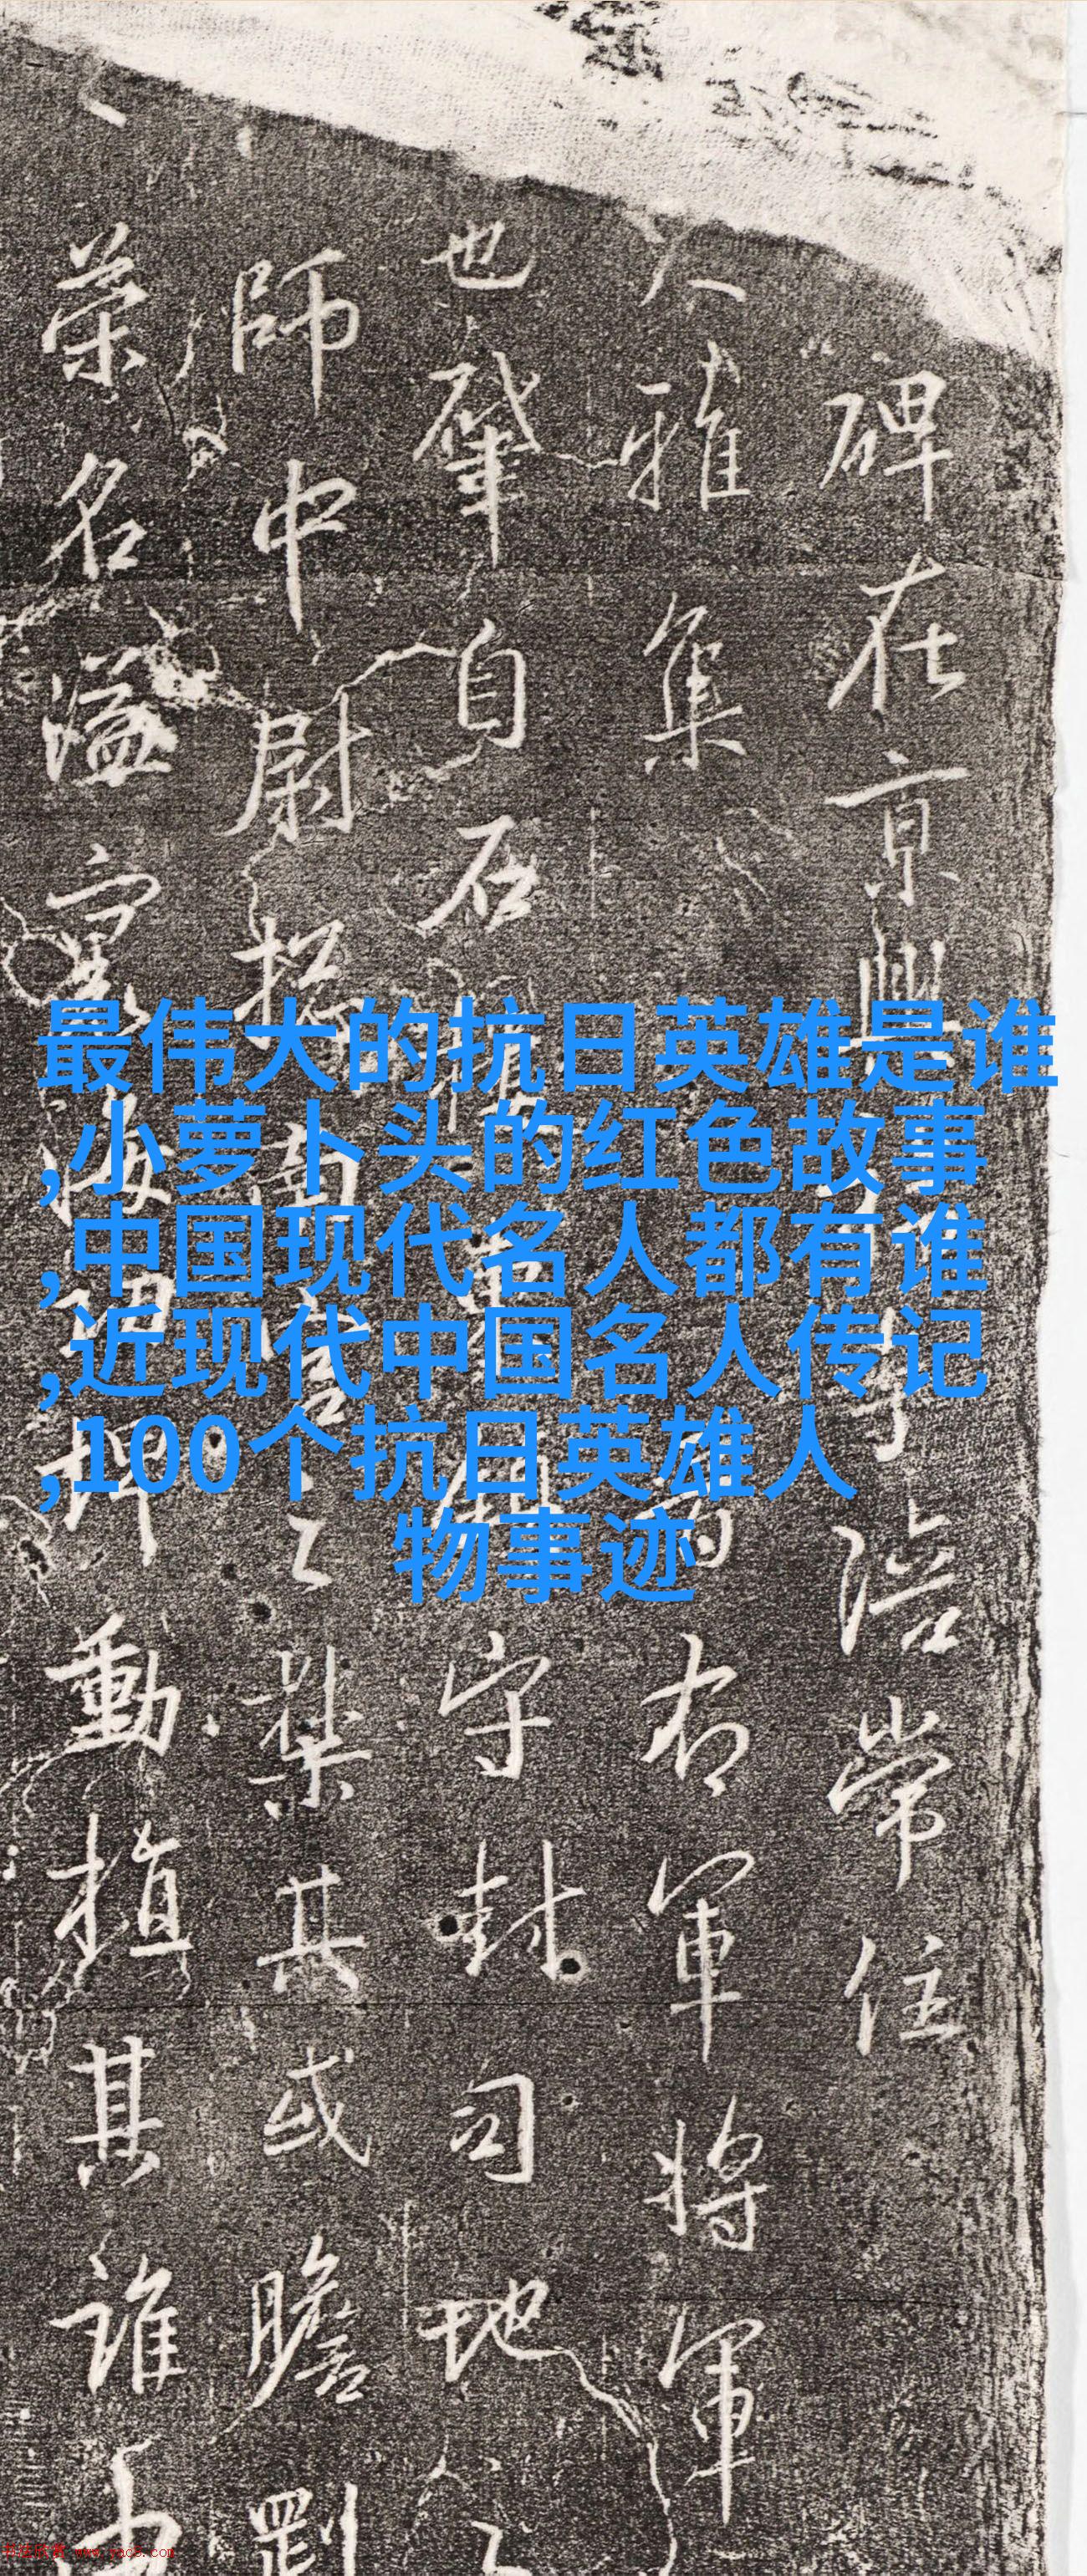 最伟大的抗日英雄是谁
,小萝卜头的红色故事
,中国现代名人都有谁
,近现代中国名人传记
,100个抗日英雄人
物事迹
碑在京興寺陪常住
雅集右軍將軍
也肇自石守封司地
師中尉桀其或瞻劉
榮名溢動植其誰
书法欣赏 www.yac8.com